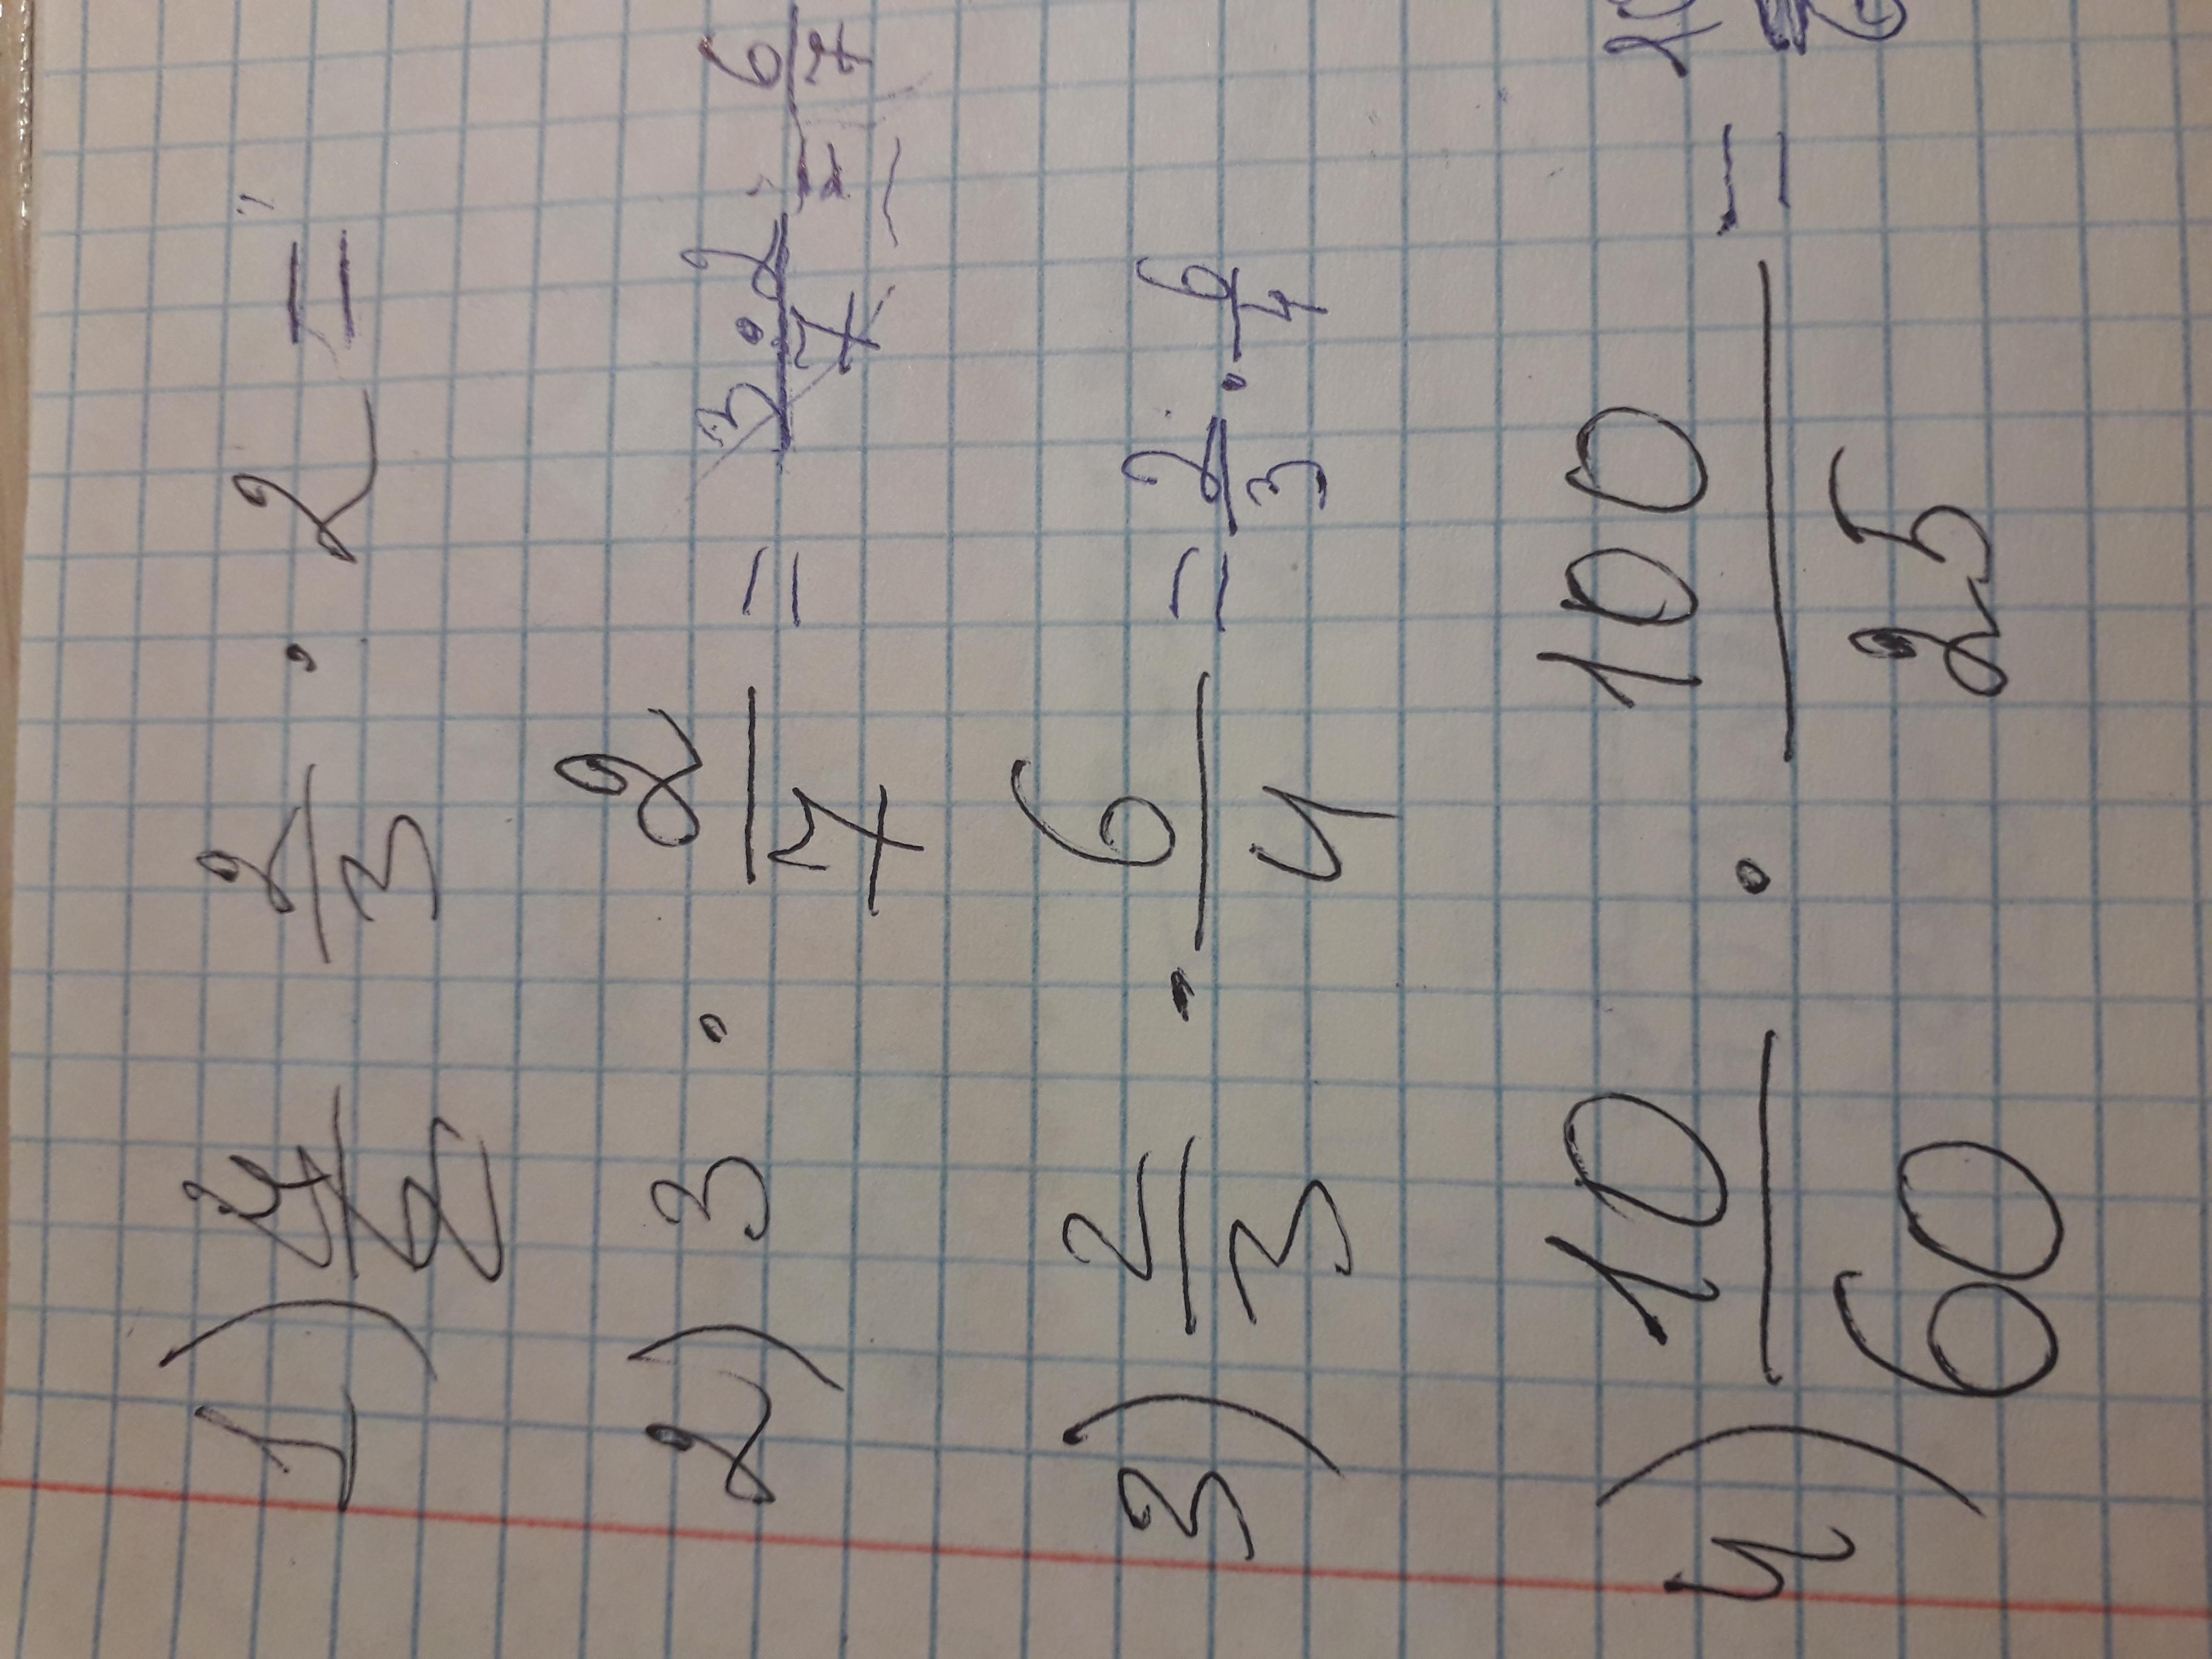 1) 2/3 · 2 =
2) 3 · 2/7 = 3·2/7 = 6/7
3) 2/3 · 6/4 = 2/3 · 6/4
4) 10/60 · 100/25 =